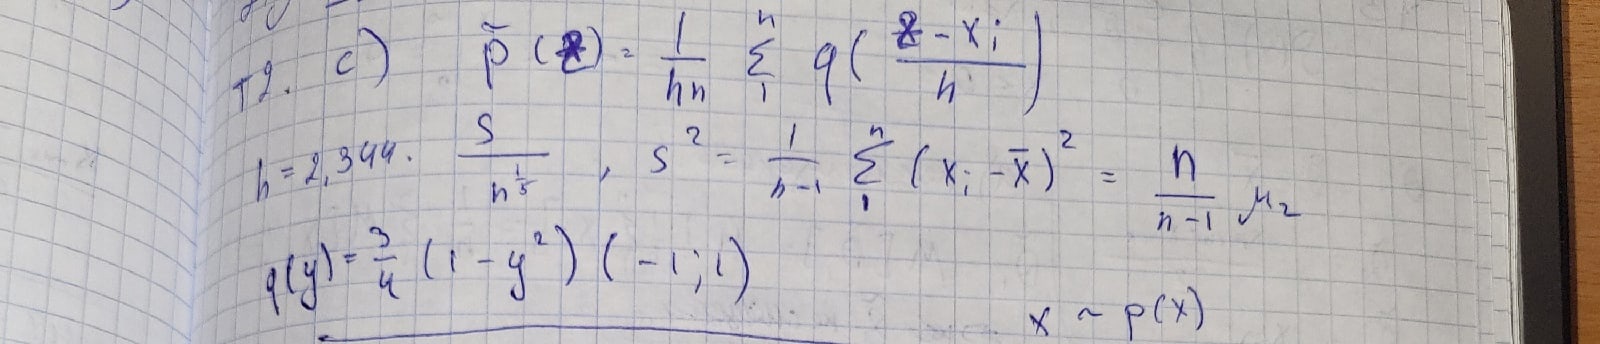 т2. c) p̃(z) = 1/(hn) Σ₁ⁿ q((z - xᵢ)/h)
h = 2,344 · s/n^(1/5) , s² = 1/(n-1) Σ₁ⁿ (xᵢ - x̄)² = n/(n-1) μ₂
q(y) = 3/4 (1 - y²) (-1; 1)
x ~ p(x)